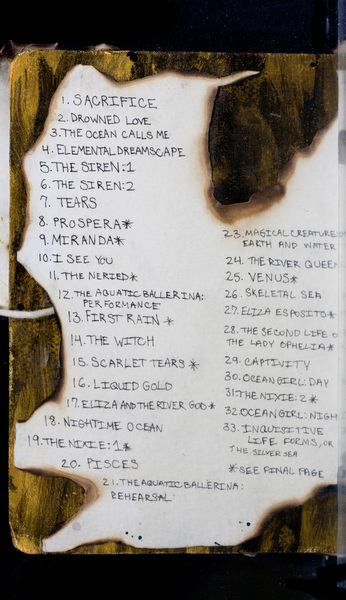 1. SACRIFICE
2. DROWNED LOVE
3. THE OCEAN CALLS ME
4. ELEMENTAL DREAMSCAPE
5. THE SIREN:1
6. THE SIREN:2
7. TEARS
8. PROSPERA*
9. MIRANDA*
10. I SEE YOU
11. THE NERIED*
12. THE AQUATIC BALLERINA:
PERFORMANCE
13. FIRST RAIN *
14. THE WITCH
15. SCARLET TEARS *
16. LIQUID GOLD
17. ELIZA AND THE RIVER GOD*
18. NIGHTIME OCEAN
19. THE NIXIE:1*
20. PISCES
21. THE AQUATIC BALLERINA:
REHEARSAL
23. MAGICAL CREATURE
EARTH AND WATER
24. THE RIVER QUEEN
25. VENUS*
26. SKELETAL SEA
27. ELIZA ESPOSITO*
28. THE SECOND LIFE O
THE LADY OPHELIA*
29. CAPTIVITY
30. OCEAN GIRL: DAY
31. THE NIXIE: 2*
32. OCEAN GIRL: NIGH
33. INQUISITIVE
LIFE FORMS, OR
THE SILVER SEA
*SEE FINAL PAGE